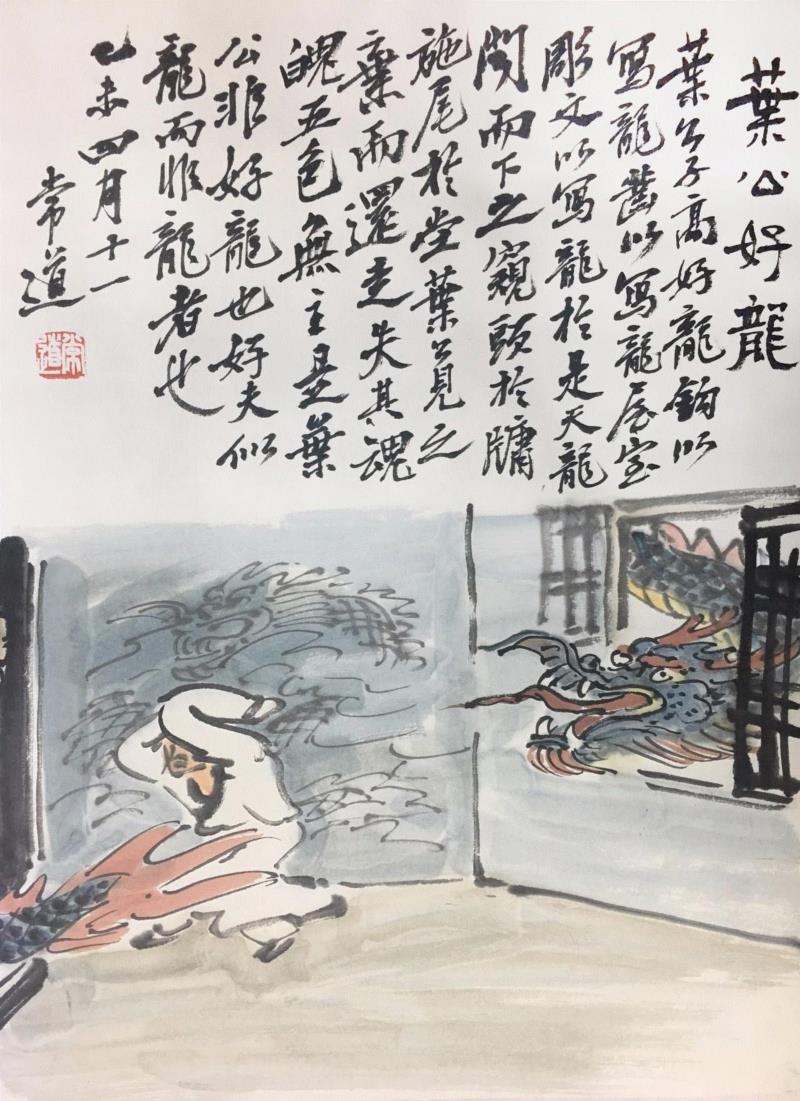 葉公好龍
葉公子高好龍鉤以
寫龍鑿以寫龍屋室
彫文以寫龍於是天龍
聞而下之窺頭於牖
施尾於堂葉公見之
棄而還走失其魂
魄五色無主是葉
公非好龍也好夫似
龍而非龍者也
乙未四月十一
常道
常道